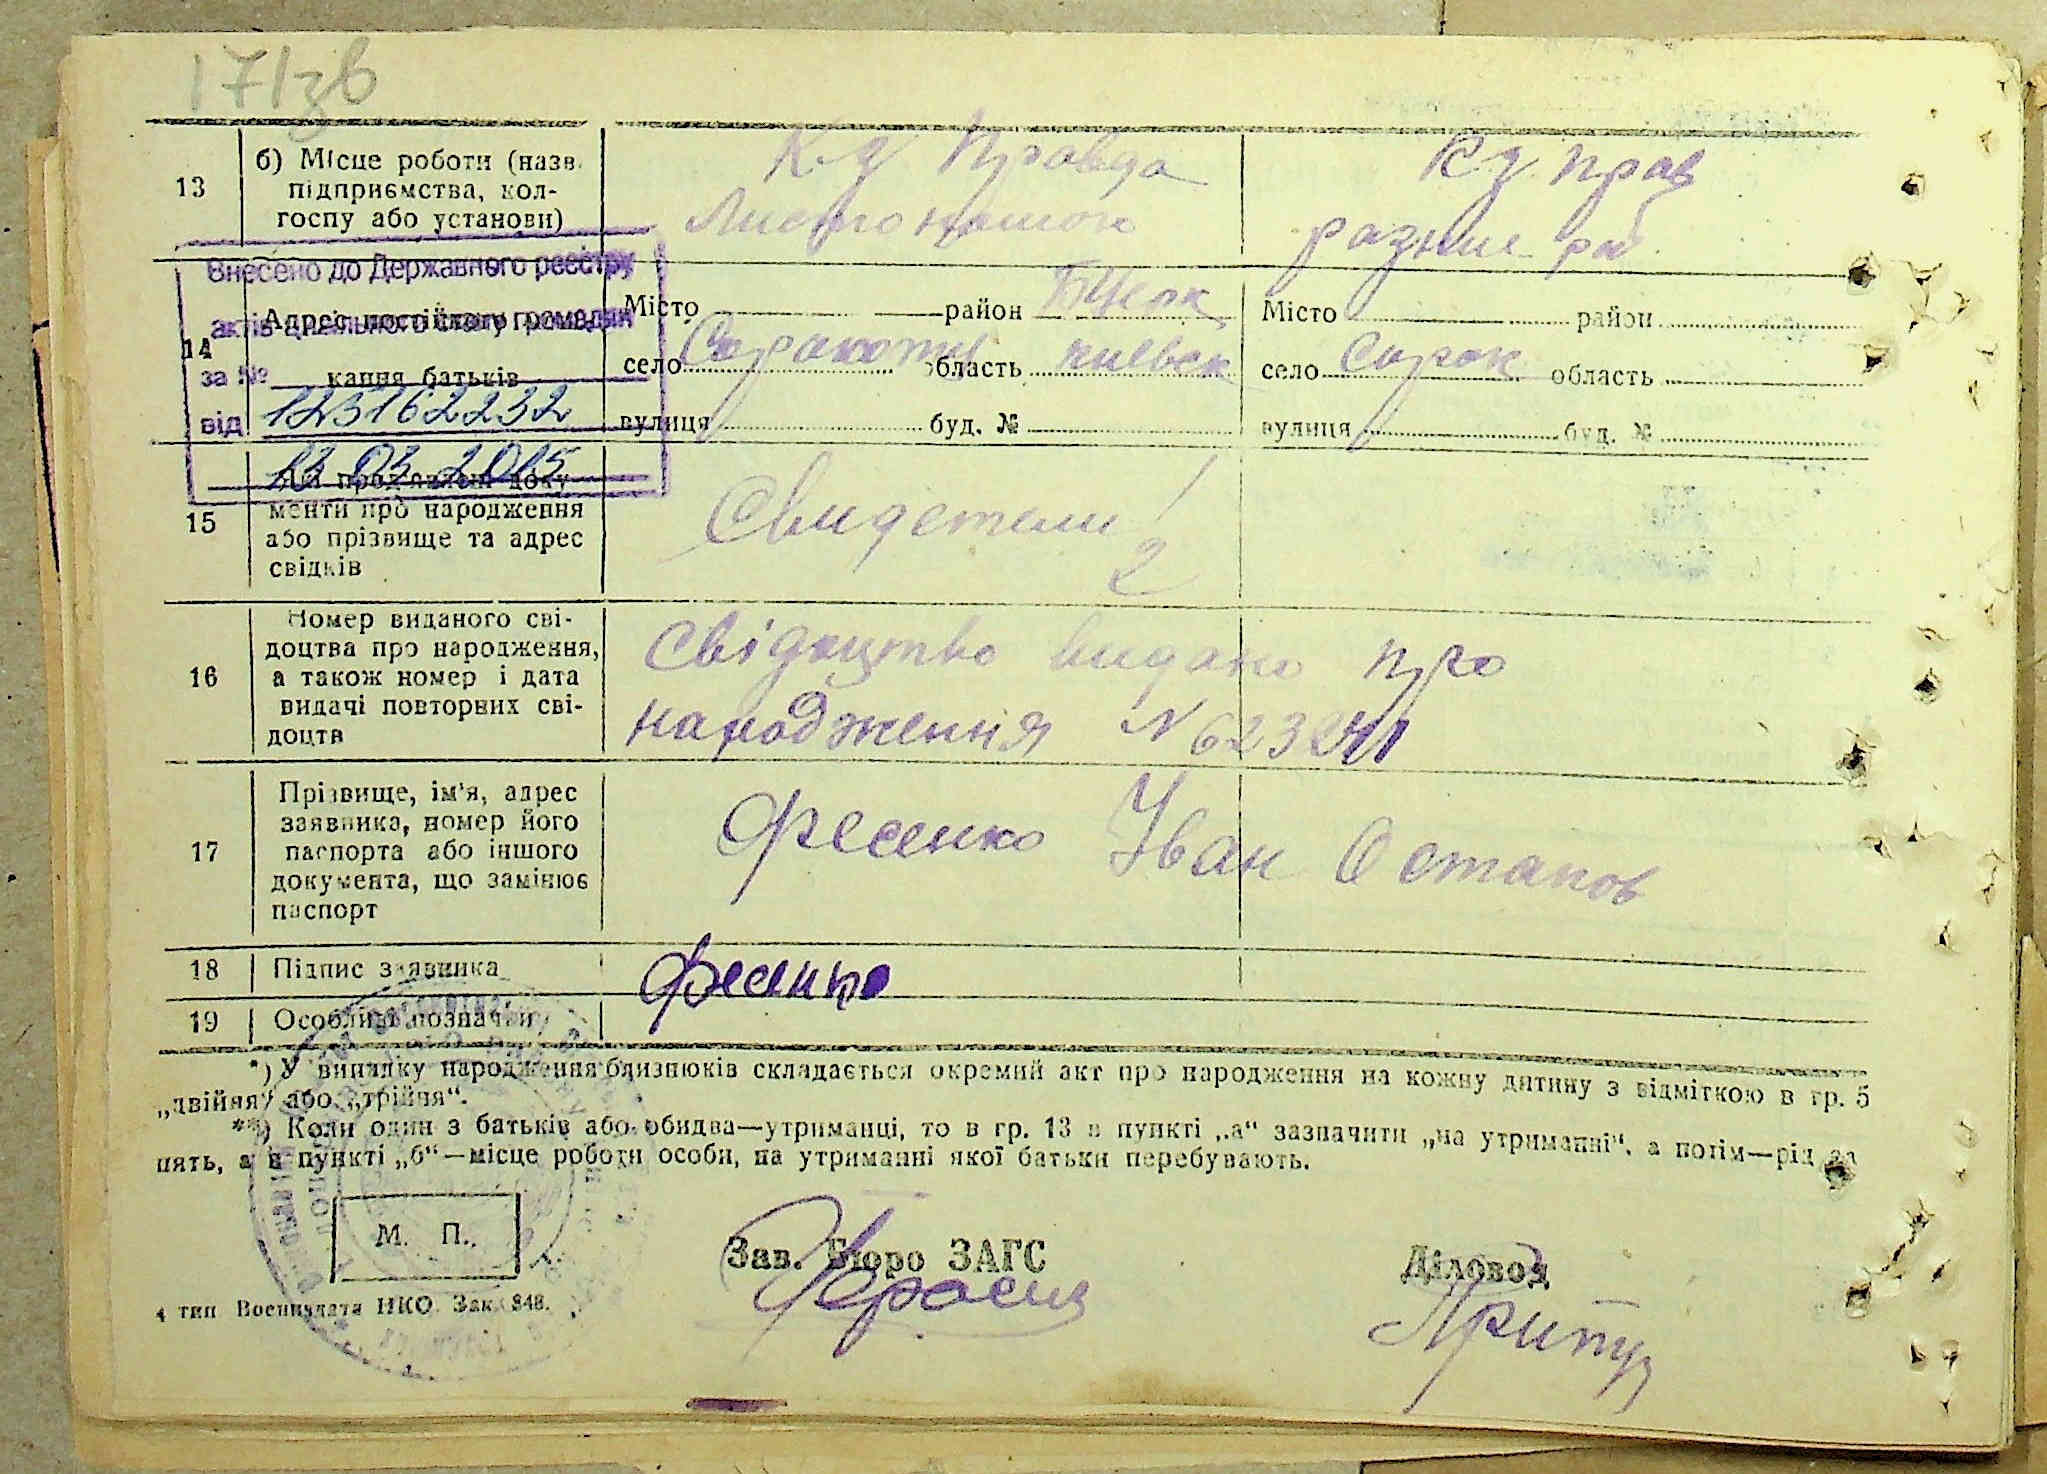 171зв
13
б) Місце роботи (назв.
підприємства, кол-
госпу або установи)
К-з Правда
Кз прав
разние раб
Внесено до Державного реєстру
актів цивільного стану громадян
за №
від
123162232
13 03 2015
14
Адрес постійного
кання батьків
Місто район БЦерк
село область киевск
вулиця буд. №
Місто район
село Сорок область
вулиця буд. №
15
менти про народження
або прізвище та адрес
свідків
Свидетели 1
2
16
Номер виданого сві-
доцтва про народження,
а також номер і дата
видачі повторних сві-
доцтв
Свідоцтво видано про
народження №
17
Прізвище, ім'я, адрес
заявника, номер його
паспорта або іншого
документа, що замінює
паспорт
Фесенко Іван Остапов
18
Підпис заявника
Фесенко
19
Особливі позначки
*) У випадку народження близнюків складається окремий акт про народження на кожну дитину з відміткою в гр. 5
„двійня" або „трійня".
**) Коли один з батьків або обидва—утриманці, то в гр. 13 в пункті „а" зазначити „на утриманні", а потім—рід за
нять, а в пункті „б"—місце роботи особи, на утриманні якої батьки перебувають.
М. П.
Зав. Бюро ЗАГС
Діловод
4 тип Воениздата НКО. Зак. 848.